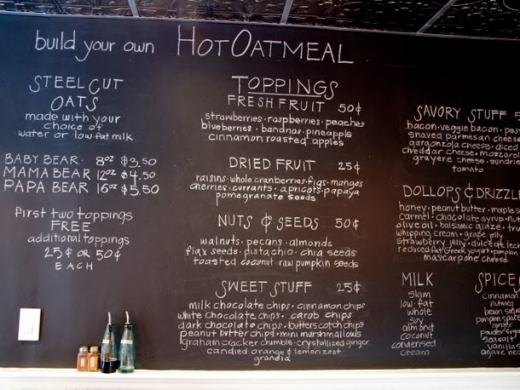 build your own HOT OATMEAL
STEEL CUT
OATS
made with your
choice of
water or low-fat milk
BABY BEAR · 8oz $3.50
MAMA BEAR 12oz $4.50
PAPA BEAR 16oz $5.50
First two toppings
FREE
additional toppings
25¢ or 50¢
EACH
TOPPINGS
FRESH FRUIT 50¢
strawberries · raspberries · peaches
blueberries · bananas · pineapple
cinnamon roasted apples
DRIED FRUIT 25¢
raisins · whole cranberries · figs · mangos
cherries · currants · apricots · papaya
pomegranate seeds
NUTS & SEEDS 50¢
walnuts · pecans · almonds
flax seeds · pistachio · chia seeds
toasted coconut · raw pumpkin seeds
SWEET STUFF 25¢
milk chocolate chips · cinnamon chips
white chocolate chips · carob chips
dark chocolate chips · butterscotch chips
peanut butter chips · mini marshmallows
graham cracker crumble · crystallized ginger
candied orange & lemon zest
SAVORY STUFF
bacon · veggie bacon
shaved parmesan cheese
gorgonzola cheese · diced
cheddar cheese
gruyere cheese
tomato
DOLLOPS & DRIZZLE
honey · peanut butter · maple
carmel · chocolate syrup
olive oil · balsamic glaze
whipping cream · grape jelly
strawberry jelly
mascarpone cheese
MILK
skim
low-fat
whole
soy
almond
coconut
condensed
cream
SPICE
cinnamon
nutmeg
ginger
vanilla